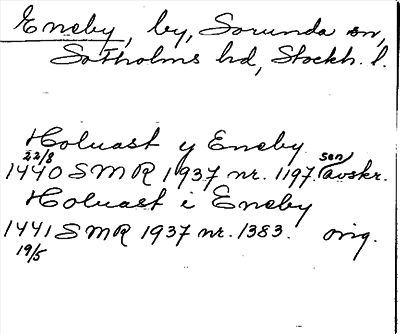 Eneby, by, Sorunda sn,
Sotholms hd, Stockh. l.
Holuast y Eneby
22/8 sen
1440 SMR 1937 nr. 1197. avskr.
Holuast i Eneby
1441 SMR 1937 nr. 1383. orig.
19/5